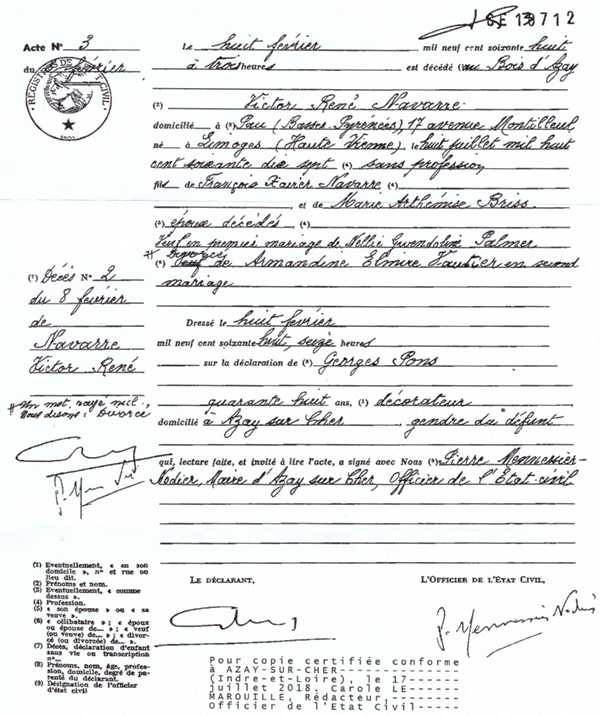 SE 13712
Acte N° 3 Le huit février mil neuf cent soixante huit
du février à trois heures est décédé au Bois d'Azay
REGISTRES DE CIVIL
(2) Victor René Navarre
domicilié à (3) Pau (Basses Pyrénées), 17 avenue Montilleul
né à Limoges (Haute Vienne) le huit juillet mil huit
cent soixante dix sept (4) sans profession
fils de François Xavier Navarre (4)
et de Marie Arthémise Briss
(4) époux décédés (4)
Veuf en premier mariage de Nellie Gwendoline Palmer
# Divorcé
(6) Veuf de Armandine Elmire Vautier en second
mariage
(7) Décès N° 2
du 8 février
de
Navarre
Victor René
Dressé le huit février
mil neuf cent soixante huit, seize heures
sur la déclaration de (8) Georges Pons
quarante huit ans, (8) décorateur
domicilié à Azay sur Cher, gendre du défunt
# Un mot rayé nul.
Nous disons : Divorcé
qui, lecture faite, et invité à lire l'acte, a signé avec Nous (9) Pierre Mennessier-
Nodier, Maire d'Azay sur Cher, Officier de l'Etat-civil
(1) Eventuellement, « en son
domicile », n° et rue ou
lieu dit.
(2) Prénoms et nom.
(3) Eventuellement, « comme
dessus ».
(4) Profession.
(5) « son épouse » ou « sa
veuve ».
(6) « célibataire » ; « époux
ou épouse de... » ; « veuf
(ou veuve) de... » ; « divor-
cé (ou divorcée) de... ».
(7) Décès, déclaration d'enfant
sans vie ou transcription
n°...
(8) Prénoms, nom, âge, profes-
sion, domicile, degré de pa-
renté du déclarant.
(9) Désignation de l'officier
d'état civil
LE DÉCLARANT,
L'OFFICIER DE L'ETAT CIVIL,
Pour copie certifiée conforme
à AZAY-SUR-CHER--------------
(Indre-et-Loire), le 17------
juillet 2018. Carole LE------
MAROUILLE, Rédacteur,--------
Officier de l'Etat Civil-----